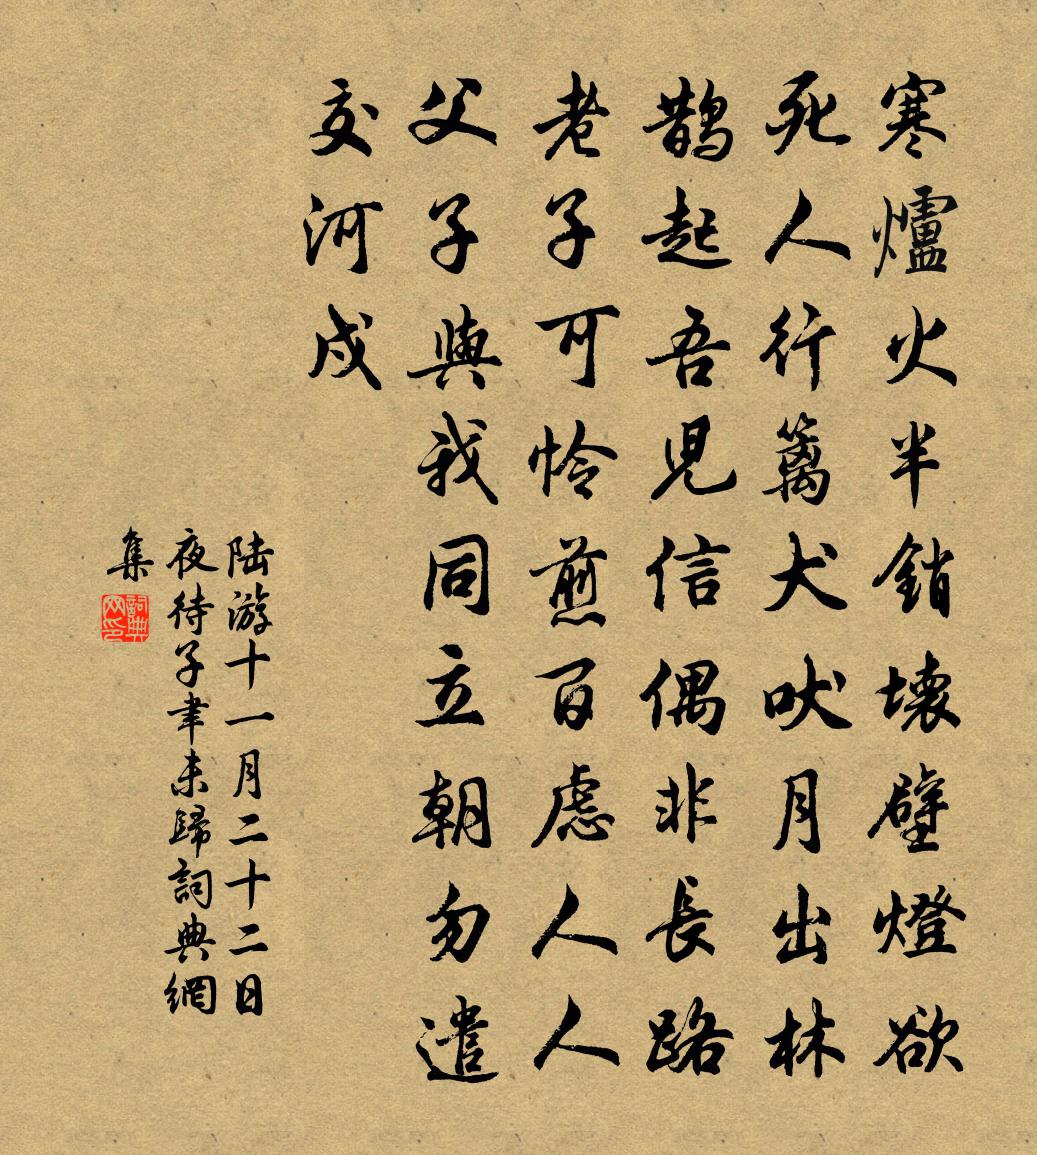 寒爐火半銷壞壁燈欲
死人行籬犬吠月出林
鵲起吾兒信偶非長路
老子可怜煎百慮人人
父子與我同立朝勿遣
交河戍
陆游十一月二十二日
夜待子聿未歸詞典網
集
詞典
网印